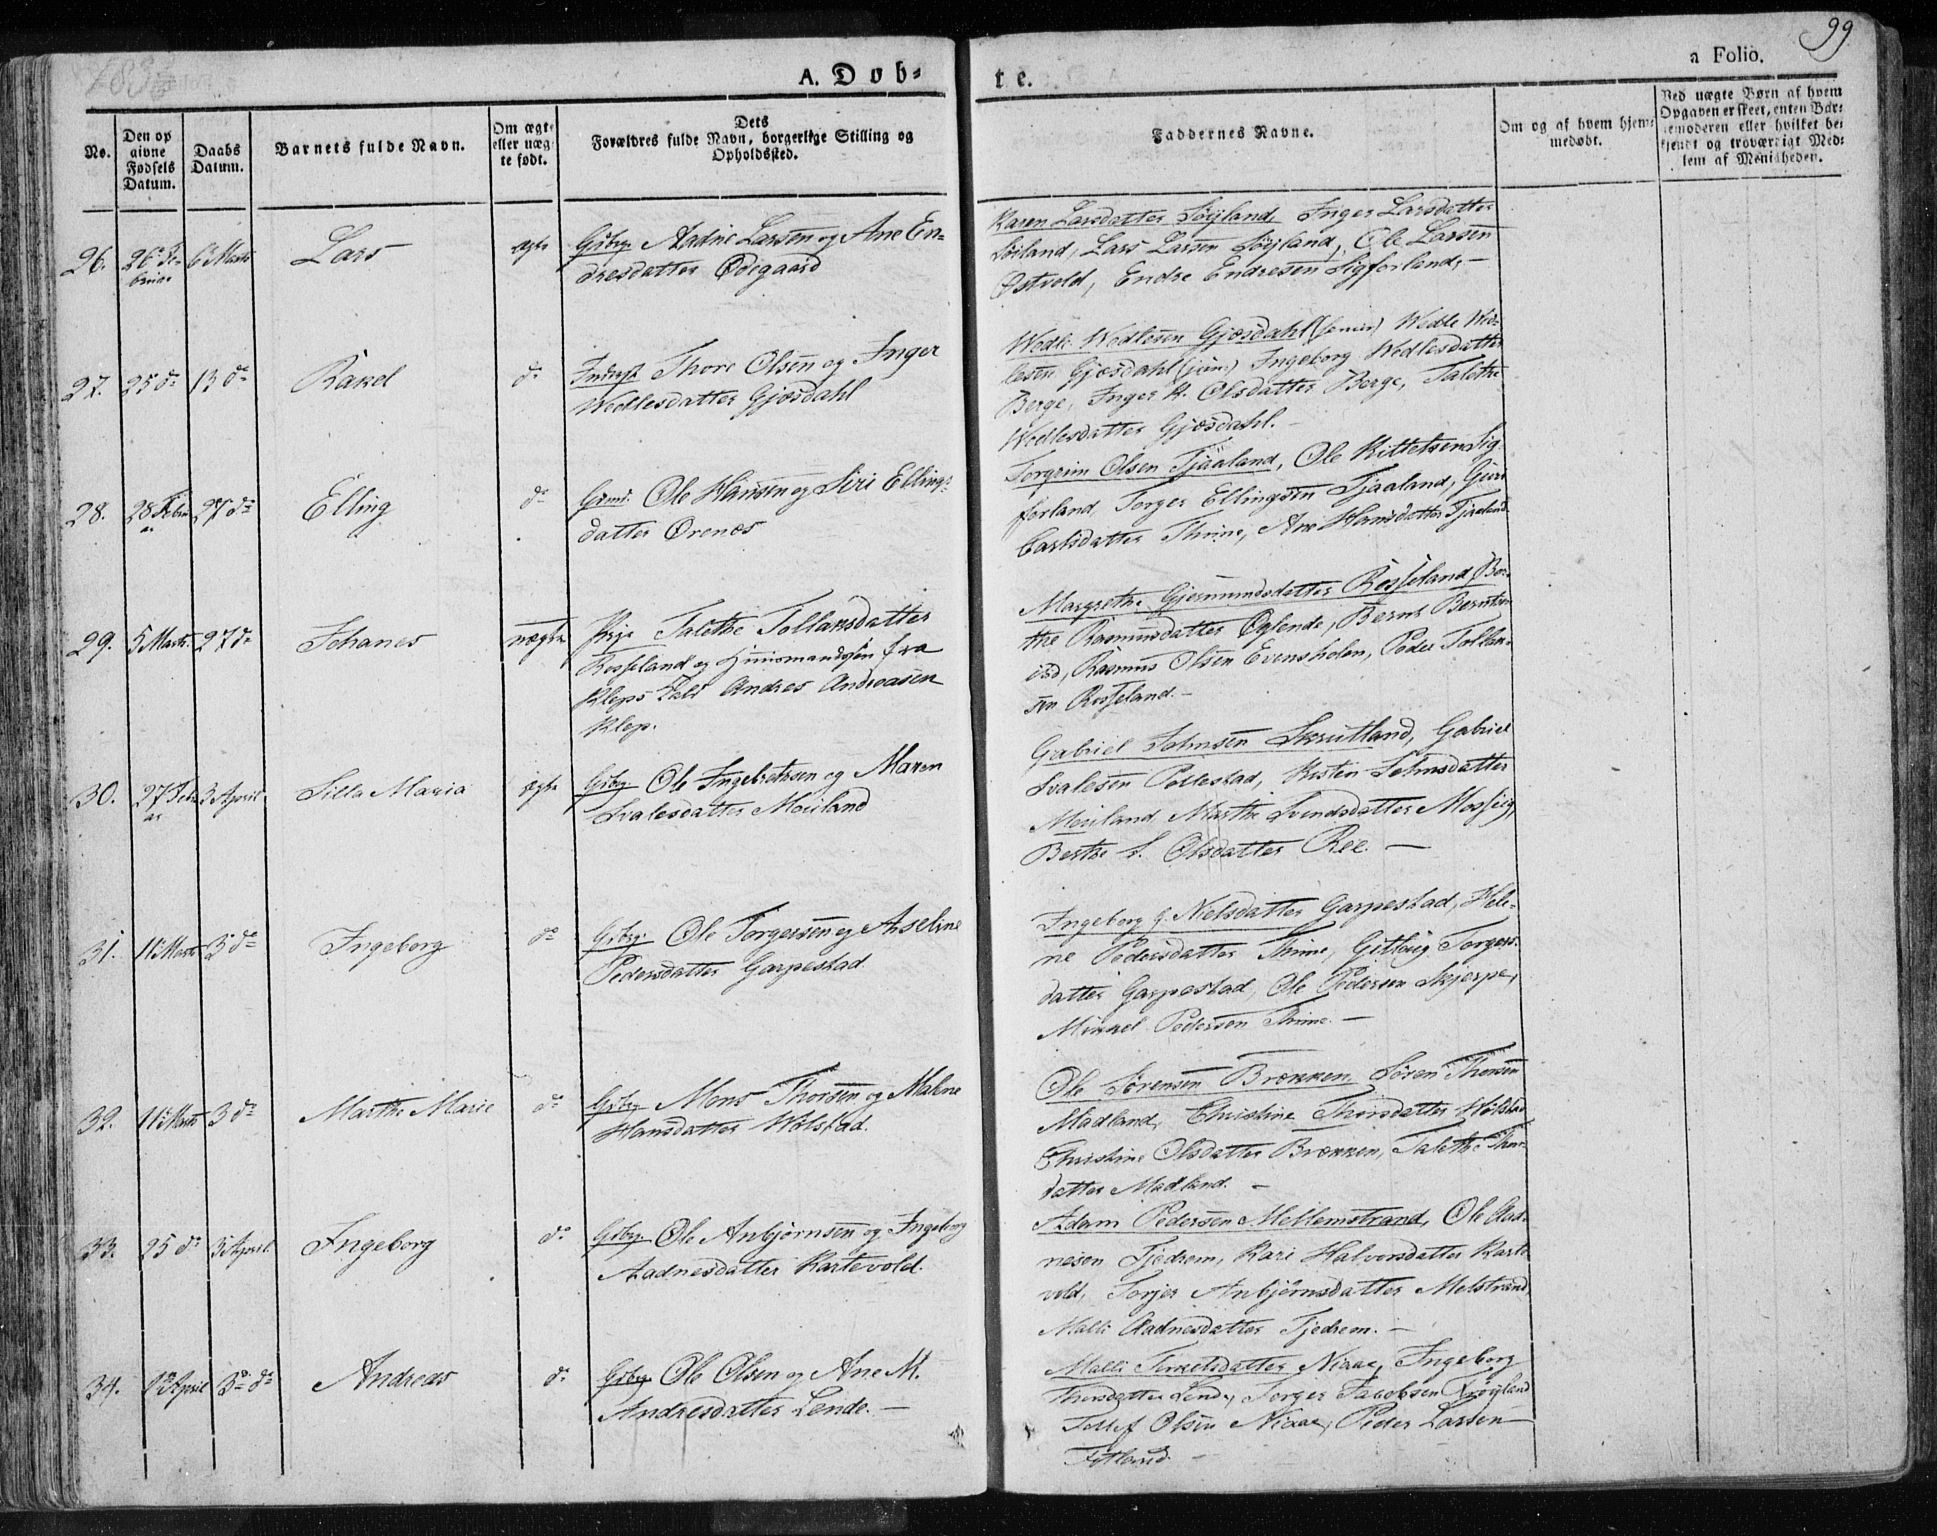 99
A. Døb-
te.
a Folio.
No.
Den op
givne
Fødsels
Datum.
Daabs
Datum.
Barnets fulde Navn.
Om ægte
eller uæg-
te født.
Dets
Forældres fulde Navn, borgerlige Stilling og
Opholdssted.
Faddernes Navne.
Om og af hvem hjem-
medøbt.
Ved uægte Børn af hvem
Opgaven er skeet, enten Bar-
nemoderen eller hvilket be-
kjendt og troværdigt Med-
lem af Menigheden.
26. 26de Fe- 6 Marts Lars ægte Gsbrgr Aadne Larsen og Ane En-
bruar
dresdatter Ødegaard
Karen Larsdatter Søyland, Inger Larsdatter
Søiland, Lars Larsen Søyland, Ole Larsen
Østvold, Endre Endresen Sigforland, -
27. 25 do 13 do Rakel do Inderst Thore Olsen og Inger
Wedlesdatter Gjøsdahl
Wedle Wedlesen Gjøsdahl (senior) Wedle Wed-
lesen Gjøsdahl (jun:) Ingeborg Wedlesdatter
Berge, Inger K. Olsdatter Berge, Talethe
Wedlesdatter Gjøsdahl. -
28. 28 Febru 27 do Elling do Grmd. Ole Hansen og Siri Ellings-
ar
datter Ørenes
Torgrim Olsen Tjaaland, Ole Kittelsen Sig-
forland, Torger Ellingsen Tjaaland, Guri
Carlsdatter Thime, Ane Hansdatter Tjaaland
29. 5 Marts 27 do Johanes uægte Pige Talethe Tollaksdatter
Rosseland og Huusmandssøn fra
Klep Andres Andreasen
Klep.
Margrethe Gjermundsdatter Rosseland, Ber-
the Rasmusdatter Øglende, Bernt Berntsen
Rasmus Olsen Evensholen, Peder Tollak-
sen Rosseland. -
30. 27 Febr 3 April Silla Maria ægte Gsbrgr Ole Ingebretsen og Maren
ar
Svalesdatter Mæiland
Gabriel Johnsen Skrutland, Gabriel
Svalesen Pollestad, Kirsten Johnsdatter
Mæiland, Marthe Svendsdatter Mossig,
Berthe S. Olsdatter Ree. -
31. 11 Marts 3 do Ingeborg do Gsbrgr Ole Torgersen og Aseline
Pedersdatter Garpestad.
Ingeborg G. Nielsdatter Garpestad, Hele-
ne Pedersdatter Thime, Gitlaug Torgers-
datter Garpestad, Ole Pedersen Skjerpe,
Mikkel Pedersen Thime. -
32. 11 Marts 3 do Marthe Marie do Gsbrgr Mons Thorsen og Malene
Hansdatter Holstad.
Ole Sørensen Brekken, Søren Thorsen
Madland, Christine Thorsdatter Holstad
Christine Olsdatter Brekken, Talethe Thors-
datter Madland. -
33. 25 do 3 April Ingeborg do Gsbrgr Ole Anbjørnsen og Ingeborg
Aadnesdatter Kartevold.
Adam Pedersen Mellemstrand, Ole Aad-
nesen Tjedrem, Kari Halvorsdatter Karte
vold, Torjer Anbjørnsdatter Melstrand
Malli Aadnesdatter Tjedrem. -
34. 1 April 3 do Andreas do Gsbrgr Ole Olsen og Ane M.
Andresdatter Lende. -
Malli Torkelsdatter Niaae, Ingeborg
Thorsdatter Lende, Torger Jacobsen Frøyland
Tollef Olsen Niaae, Peder Larsen
Fotland. -